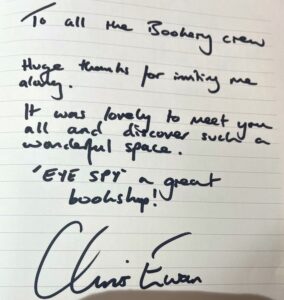 To all the Bookery crew
Huge thanks for inviting me
along.
It was lovely to meet you
all and discover such a
wonderful space.
'EYE SPY' a great
bookshop!
Chris Ewan